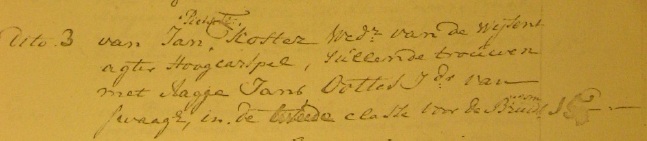 Pieterse
Dito 3 van Jan Koster Wedr van de Weijdent
agter Hoogcarspel, Sullende trouwen
met Aagge Jans Dotter J:dr van
Swaagh, in de tweede classe voor de Bruid